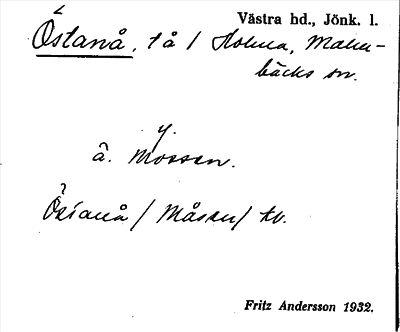 Västra hd., Jönk. l.
Östanå, tå / Holma, Malm-
bäcks sn.
y.
å. Mossen.
Östanå / Måsen/ tv.
Fritz Andersson 1932.